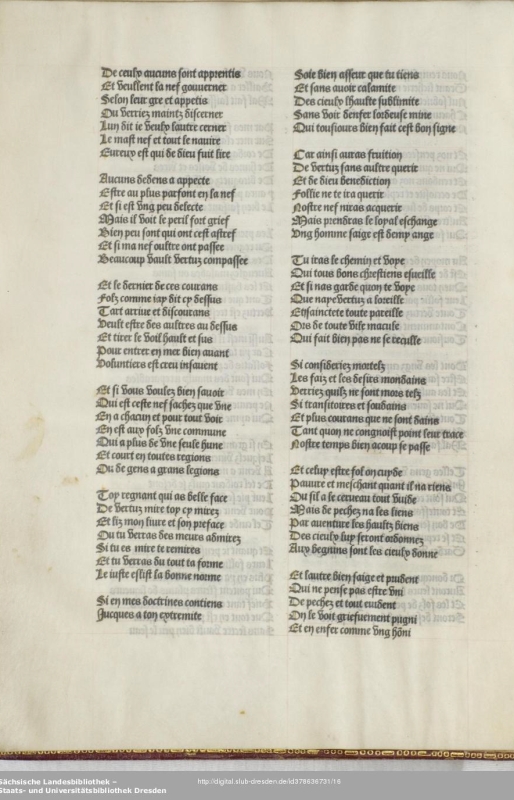 De ceulx aucuns sont apprentis
Et veullent la nef gouverner
Selon leur gre et appetis
Ou verriez maintz discerner
Lun dit ie veulx lautre cerner
Le mast nef et tout le nauire
Eureux est qui de dieu fuit lire
Aucuns dedens a appecte
Estre au plus parfont en la nef
Et si est vng peu delecte
Mais il voit le peril fort grief
Bien peu sont qui ont cest astref
Et si ma nef oultre ont passee
Beaucoup vault vertuz compassee
Et le dernier de ces courans
Folz comme iay dit cy dessus
Tart arriue et discourans
Veult estre des aultres au dessus
Et tirer le voil hault et sus
Pour entrer en mer bien auant
Voluntiers est creu insauent
Et si vous voulez bien sauoir
Qui est ceste nef sachez que vne
En a chacun et pour tout voir
En est aux folz vne commune
Qui a plus de vne seule hune
Et court en toutes regions
Ou de gens a grans legions
Toy regnant qui as belle face
De vertuz mire toy cy mirez
Et liz mon liure et son preface
Ou tu verras des meurs admirez
Si tu es mire te remires
Et tu verras du tout ta forme
Le iuste eslist la bonne norme
Si en mes doctrines contiens
Jucques a ton extremite
Soie bien asseur que tu tiens
Et sans auoir calamite
Des cieulx lhaulte sublimite
Sans voir denfer lordeuse mine
Qui tousiours bien fait cest bon signe
Car ainsi auras fruition
De vertuz sans aultre querir
Et de dieu benediction
Follie ne te ira querir
Nostre nef niras acquerir
Mais prendras le loyal eschange
Vng homme saige est demy ange
Tu iras le chemin et voye
Qui tous bons chrestiens esueille
Et si nas garde quon te voye
Que naye vertuz a loreille
Et sainctete toute pareille
Ors de toute vile macule
Qui fait bien pas ne se reculle
Si consideriez mortelz
Les faiz et les desirs mondains
Verriez quilz ne sont mors telz
Si transitoires et soudains
Et plus courans que ne sont dains
Tant quon ne congnoist point leur trace
Nostre temps bien acoup se passe
Et celuy estre fol on cuyde
Pauure et meschant quant il na riens
Ou sil a le cerueau tout vuide
Mais de pechez na les liens
Par auenture les haultz biens
Des cieulx luy seront ordonnez
Aux benguins sont les cieulx donne
Et lautre bien saige et prudent
Qui ne pense pas estre vni
De pechez et tout euident
On le voit griefuement pugni
Et en enfer comme vng hõni
Sächsische Landesbibliothek –
Staats- und Universitätsbibliothek Dresden
http://digital.slub-dresden.de/id378636731/16